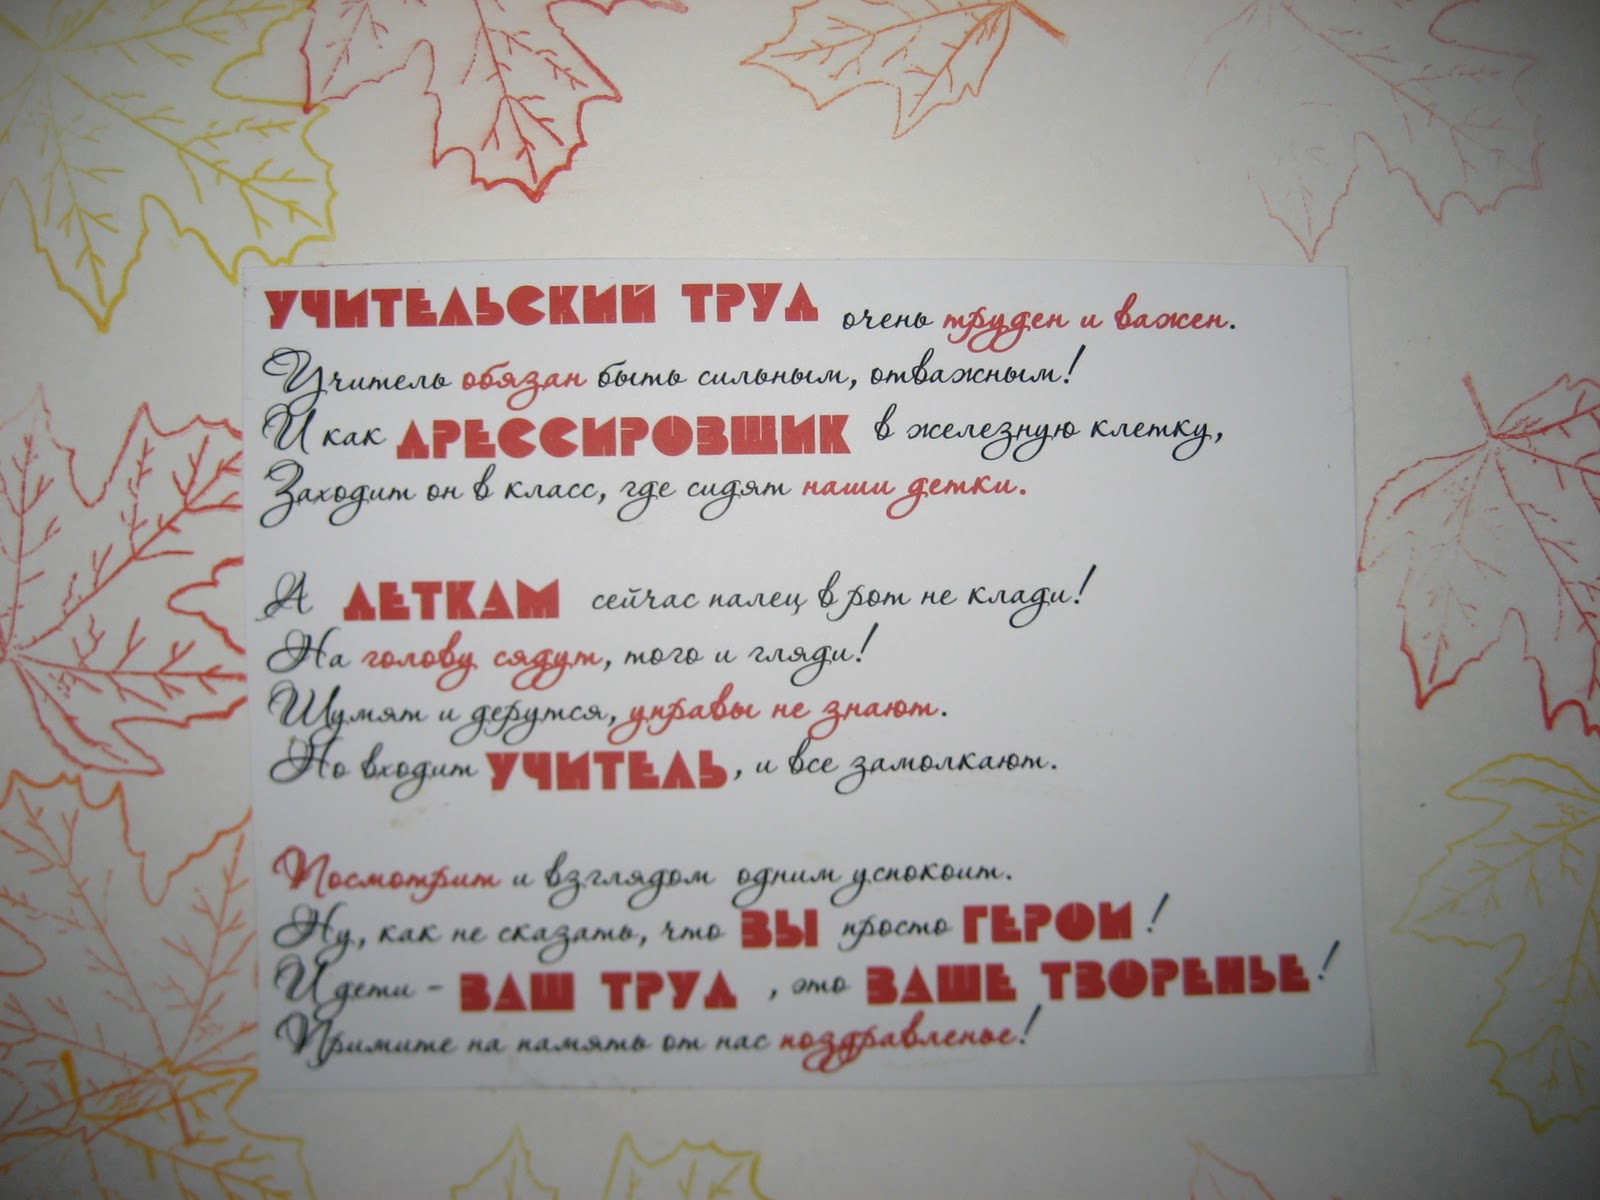 УЧИТЕЛЬСКИЙ ТРУД очень труден и важен.
Учитель обязан быть сильным, отважным!
И как ДРЕССИРОВЩИК в железную клетку,
Заходит он в класс, где сидят наши детки.
А ДЕТКАМ сейчас палец в рот не клади!
На голову сядут, того и гляди!
Шумят и дерутся, управы не знают.
Но входит УЧИТЕЛЬ, и все замолкают.
Посмотрит и взглядом одним успокоит.
Ну, как не сказать, что ВЫ просто ГЕРОИ!
И дети - ВАШ ТРУД, это ВАШЕ ТВОРЕНЬЕ!
Примите на память от нас поздравленье!